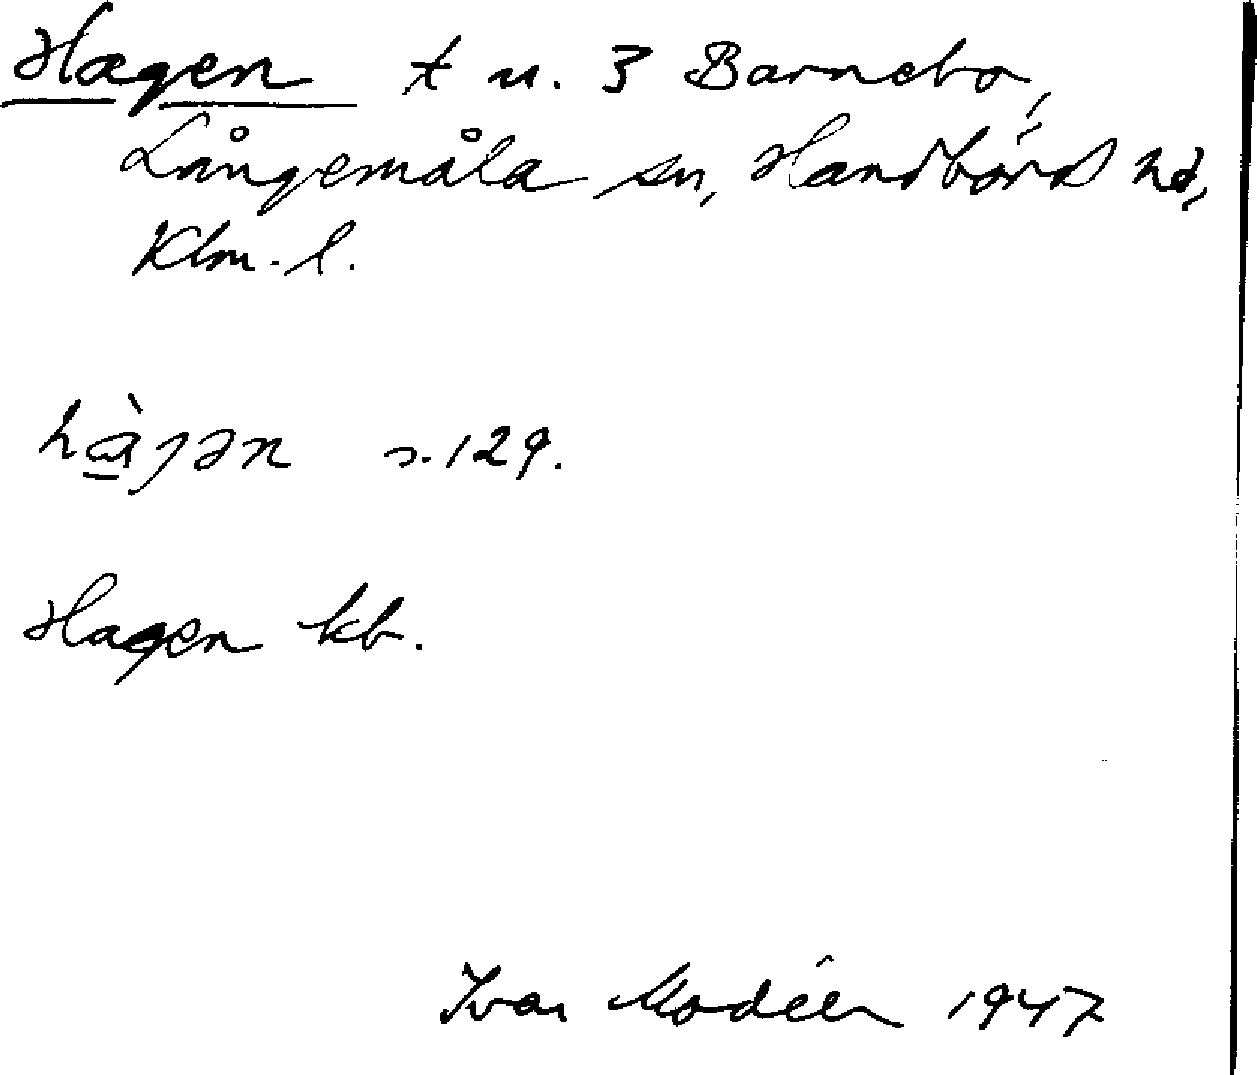 Hagen t u. 3 Barnebo,
Långemåla sn, Handbörds hd,
Klm. l.
hàgən s. 129.
Hagen kb.
Ivar Modéer 1947